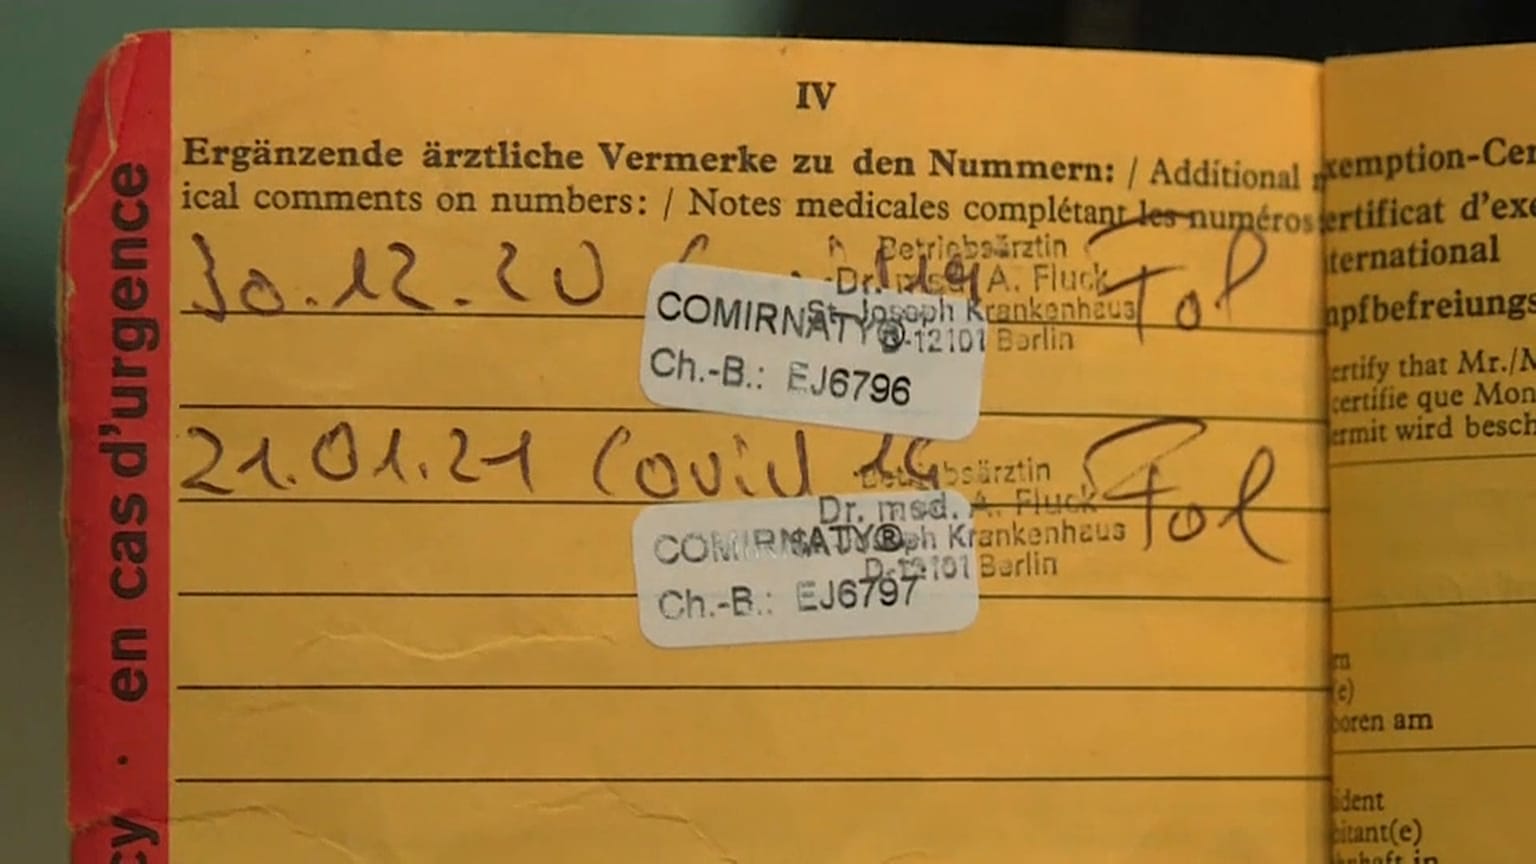 IV
Ergänzende ärztliche Vermerke zu den Nummern: / Additional
ical comments on numbers: / Notes medicales complétant les numéros
30.12.20
Betriebsärztin
Dr. med. A. Fluck
St. Joseph Krankenhaus
D-12101 Berlin
COMIRNATY®
Ch.-B.: EJ6796
21.01.21 Covid 19
Betriebsärztin
Dr. med. A. Fluck
St. Joseph Krankenhaus
D-12101 Berlin
COMIRNATY®
Ch.-B.: EJ6797
cy · en cas d'urgence
xemption-Cer
ertificat d'exe
ternational
mpfbefreiungs
ertify that Mr./M
certifie que Mon
ermit wird besch
(e)
boren am
ident
bitant(e)